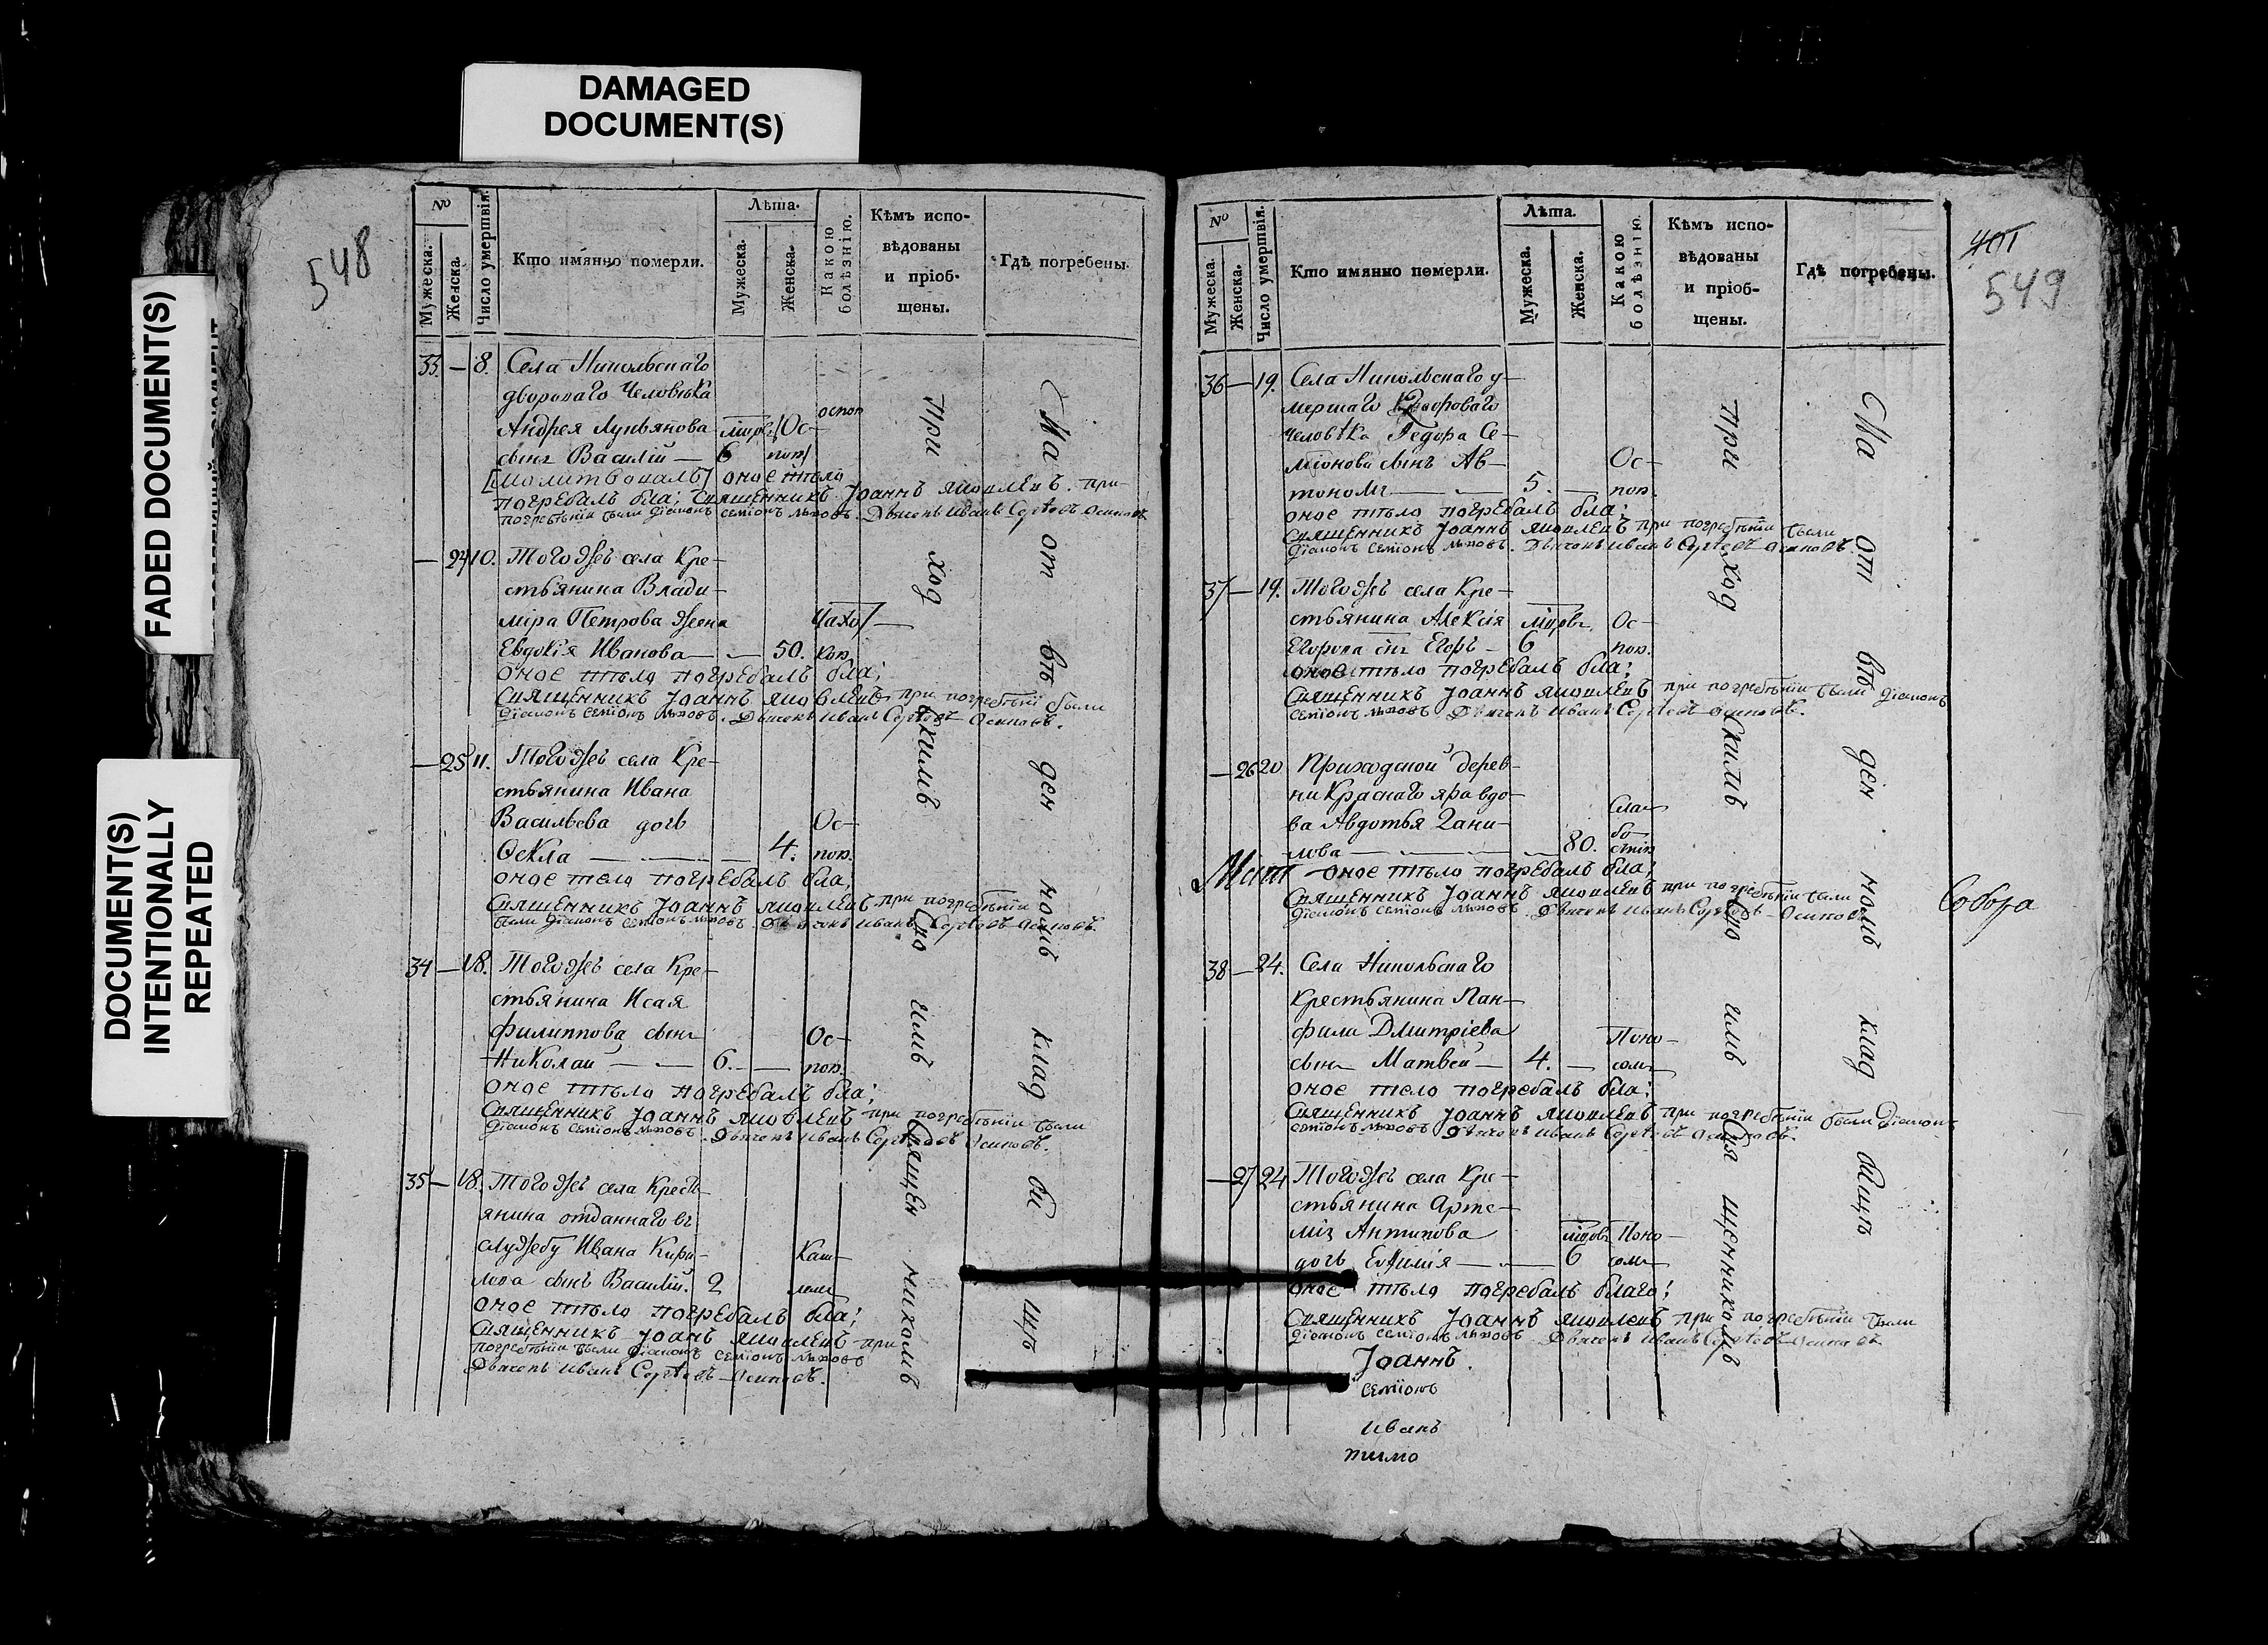 DAMAGED
DOCUMENT(S)
FADED DOCUMENT(S)
DOCUMENT(S)
INTENTIONALLY
REPEATED
548
№
Мужеска.
Женска.
Число умертвія.
Кто имянно померли.
Лѣта.
Мужеска.
Женска.
Какою болѣзнію.
Кѣмъ испо-
вѣдованы
и пріоб-
щены.
Гдѣ погребены.
33. — 8. Села Никольскаго
двороваго человѣка
Андрея Лукьянова Ос-
сынъ Василій — 6 поп.
оное тѣло
погребалъ бла; Священникъ Іоаннъ Яковлевъ. при
погребѣніи были Діаконъ Семіонъ Львовъ. Дьячекъ Иванъ Сергѣевъ Осиповъ
— 24 10. Тогожъ села Кре-
стьянина Влади-
міра Петрова жена Чахо
Евдокія Иванова — — 50. кою.
оное тѣло погребалъ бла;
Священникъ Іоаннъ Яковлевъ при погребѣніи были
Діаконъ Семіонъ Львовъ. Дьячекъ Иванъ Сергѣевъ Осиповъ.
— 25 11. Тогожъ села Кре-
стьянина Ивана
Васильева дочь Ос-
Ѳекла — — — 4. пою.
оное тело погребалъ бла;
Священникъ Іоаннъ Яковлевъ при погребѣніи
были Діаконъ Семіонъ Львовъ. Дьячекъ Иванъ Сергѣевъ Осиповъ.
34 — 18. Тогожъ села Кре-
стьянина Исая
Филиппова сынъ Ос-
Николай — — 6. — пою.
оное тѣло погребалъ бла;
Священникъ Іоаннъ Яковлевъ при погребѣніи были
Діаконъ Семіонъ Львовъ. Дьячекъ Иванъ Сергѣевъ Осиповъ.
35 — 18. Тогожъ села Кресть-
янина отданнаго въ
службу Ивана Кири- Каш-
лова сынъ Василій. 2 лемъ
оное тѣло погребалъ бла;
Священникъ Іоанъ Яковлевъ при
погребѣніи были Діаконъ Семіонъ Львовъ
Дьячекъ Иванъ Сергѣевъ Осиповъ.
При ход скимъ Священникомъ
На от вѣ ден номъ клад би щѣ
549
№
Мужеска.
Женска.
Число умертвія.
Кто имянно померли.
Лѣта.
Мужеска.
Женска.
Какою болѣзнію.
Кѣмъ испо-
вѣдованы
и пріоб-
щены.
Гдѣ погребены.
36 — 19. Села Никольскаго у-
мершаго двороваго
человѣка Ѳедора Се-
міонова сынъ Ав- Ос-
тономъ — — 5. — пою.
оное тѣло погребалъ бла;
Священникъ Іоаннъ Яковлевъ при погребѣніи были
Діаконъ Семіонъ Львовъ. Дьячекъ Иванъ Сергѣевъ Осиповъ.
37 — 19. Тогожъ села Кре-
стьянина Алексія Ос-
Егорова снъ Егоръ — 6 пою.
оное тѣло погребалъ бла;
Священникъ Іоаннъ Яковлевъ при погребѣніи были Діаконъ
Семіонъ Львовъ. Дьячекъ Иванъ Сергѣевъ Осиповъ.
— 26 20 Приходской дерев-
ни Краснаго яра вдо- Сла-
ва Авдотья Дани- бо-
лова — — — 80. стію
оное тѣло погребалъ бла;
Священникъ Іоаннъ Яковлевъ при погребѣніи были
Діаконъ Семіонъ Львовъ. Дьячекъ Иванъ Сергѣевъ Осиповъ
Собора
38 — 24. Села Никольскаго
Крестьянина Пан-
фила Дмитріева Поно-
сынъ Матвей — 4. — сомъ
оное тело погребалъ бла;
Священникъ Іоаннъ Яковлевъ при погребѣніи были Діаконъ
Семіонъ Львовъ Дьячекъ Иванъ Сергѣевъ Осиповъ.
— 27 24 Тогожъ села Кре-
стьянина Арте-
мія Антипова Поно-
дочь Евфимія — — 6 сомъ
оное тѣло погребалъ благо;
Священникъ Іоаннъ Яковлевъ при погребѣніи были
Діаконъ Семіонъ Львовъ Дьячекъ Иванъ Сергѣевъ Осиповъ
Іоаннъ
Семіонъ
Иванъ
При ход скимъ Священникомъ
На от вѣ ден номъ клад бищѣ